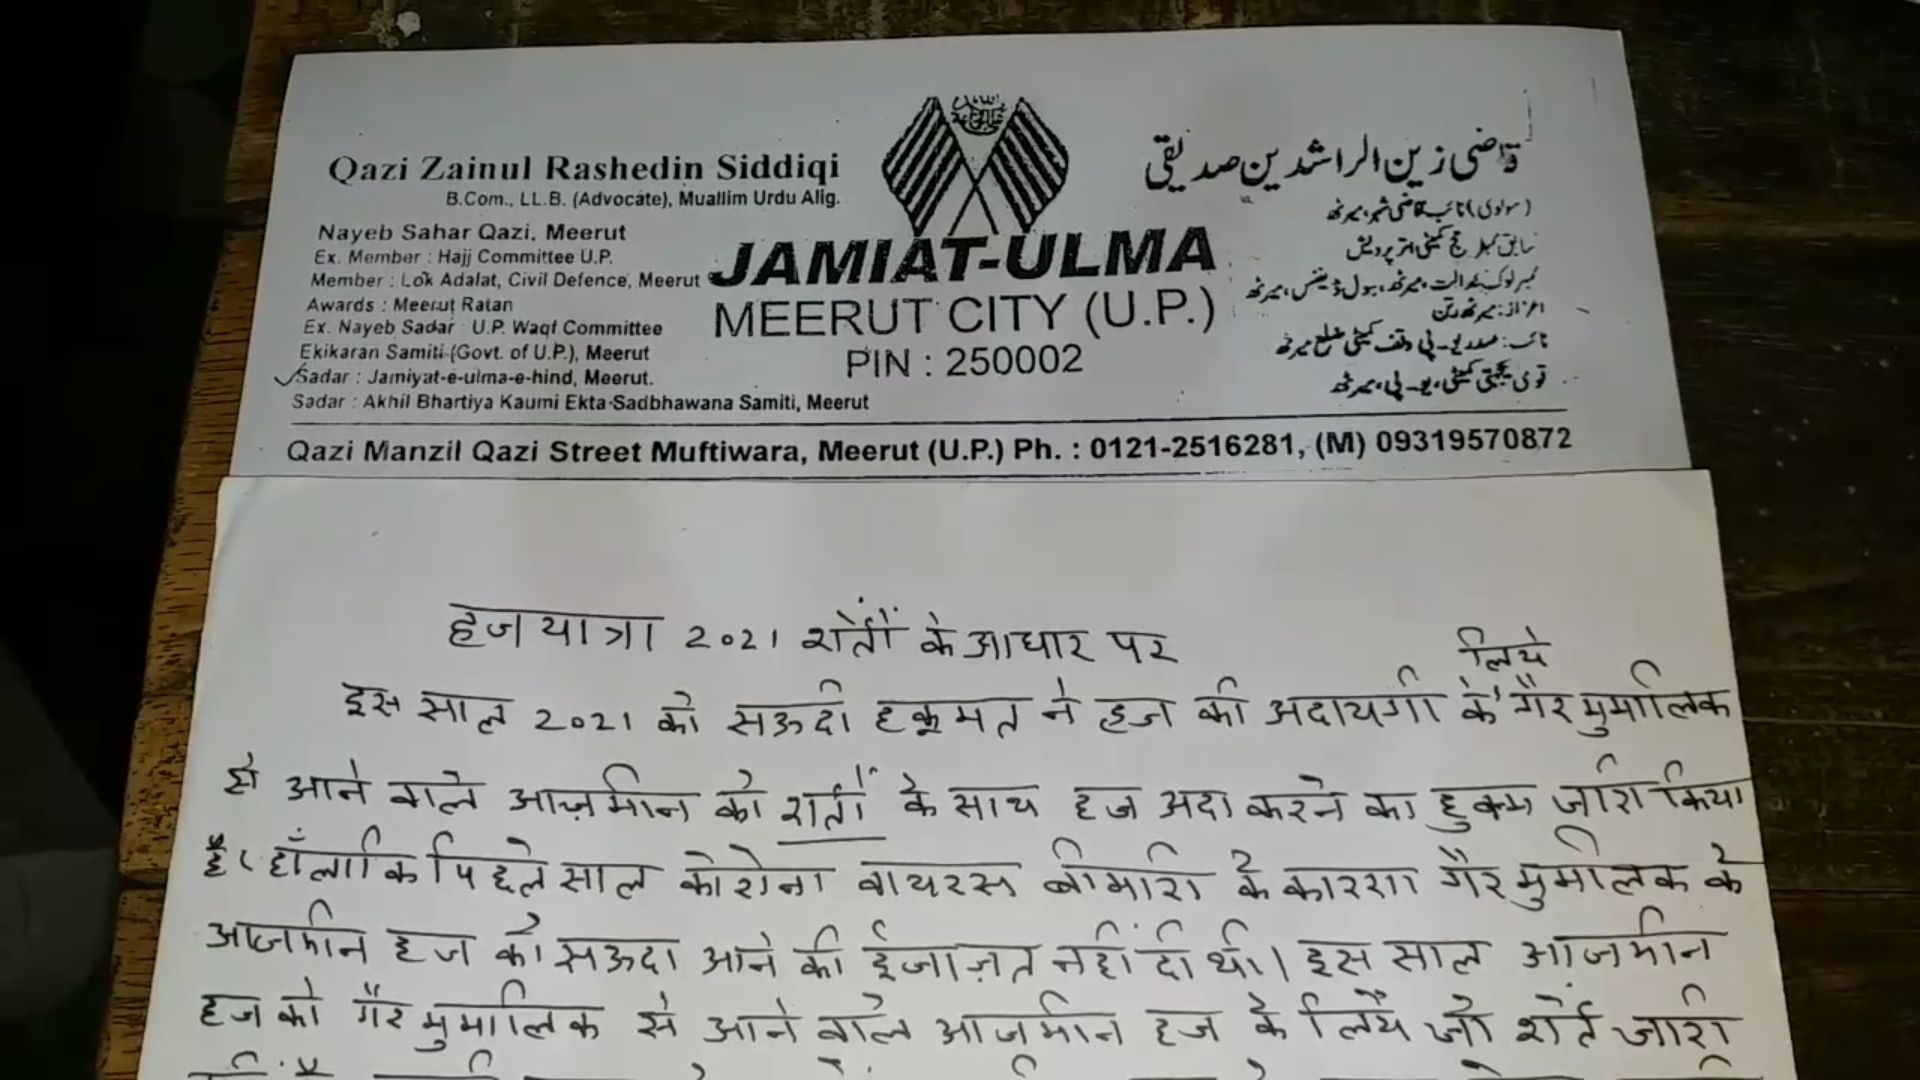 Qazi Zainul Rashedin Siddiqi
B.Com., LL.B. (Advocate), Muallim Urdu Alig.
Nayeb Sahar Qazi, Meerut
Ex. Member : Hajj Committee U.P.
Member : Lok Adalat, Civil Defence, Meerut
Awards : Meerut Ratan
Ex. Nayeb Sadar : U.P. Waqf Committee
Ekikaran Samiti (Govt. of U.P.), Meerut
Sadar : Jamiyat-e-ulma-e-hind, Meerut.
Sadar : Akhil Bhartiya Kaumi Ekta-Sadbhawana Samiti, Meerut
JAMIAT-ULMA
MEERUT CITY (U.P.)
PIN : 250002
قاضی زین الراشدین صدیقی
(مولوی) نائب قاضی شہر، میرٹھ
سابق ممبر حج کمیٹی اتر پردیش
ممبر لوک عدالت، میرٹھ، سول ڈیفنس، میرٹھ
اعزاز: میرٹھ رتن
نائب: صدر یو-پی وقف کمیٹی ضلع میرٹھ
قومی یکجہتی کمیٹی، یو-پی، میرٹھ
Qazi Manzil Qazi Street Muftiwara, Meerut (U.P.) Ph. : 0121-2516281, (M) 09319570872
हज यात्रा 2021 शर्तों के आधार पर
इस साल 2021 को सऊदी हकूमत ने हज की अदायगी के लिये गैर मुमालिक
से आने वाले आज़मीन को शर्तों के साथ हज अदा करने का हुक्म जारी किया
है। हाँलाकि पिछले साल कोरोना वायरस बीमारी के कारण गैर मुमालिक के
आजमीन हज को सऊदी आने की ईजाज़त नहीं दी थी। इस साल आजमीन
हज को गैर मुमालिक से आने वाले आजमीन हज के लिये जो शर्ते जारी